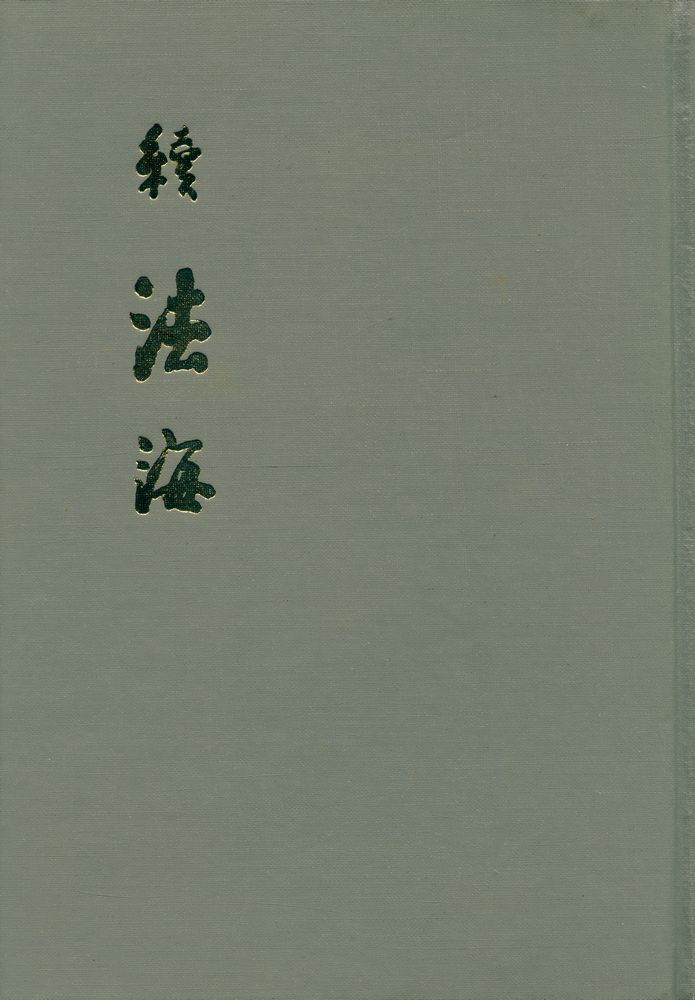 續
法
海